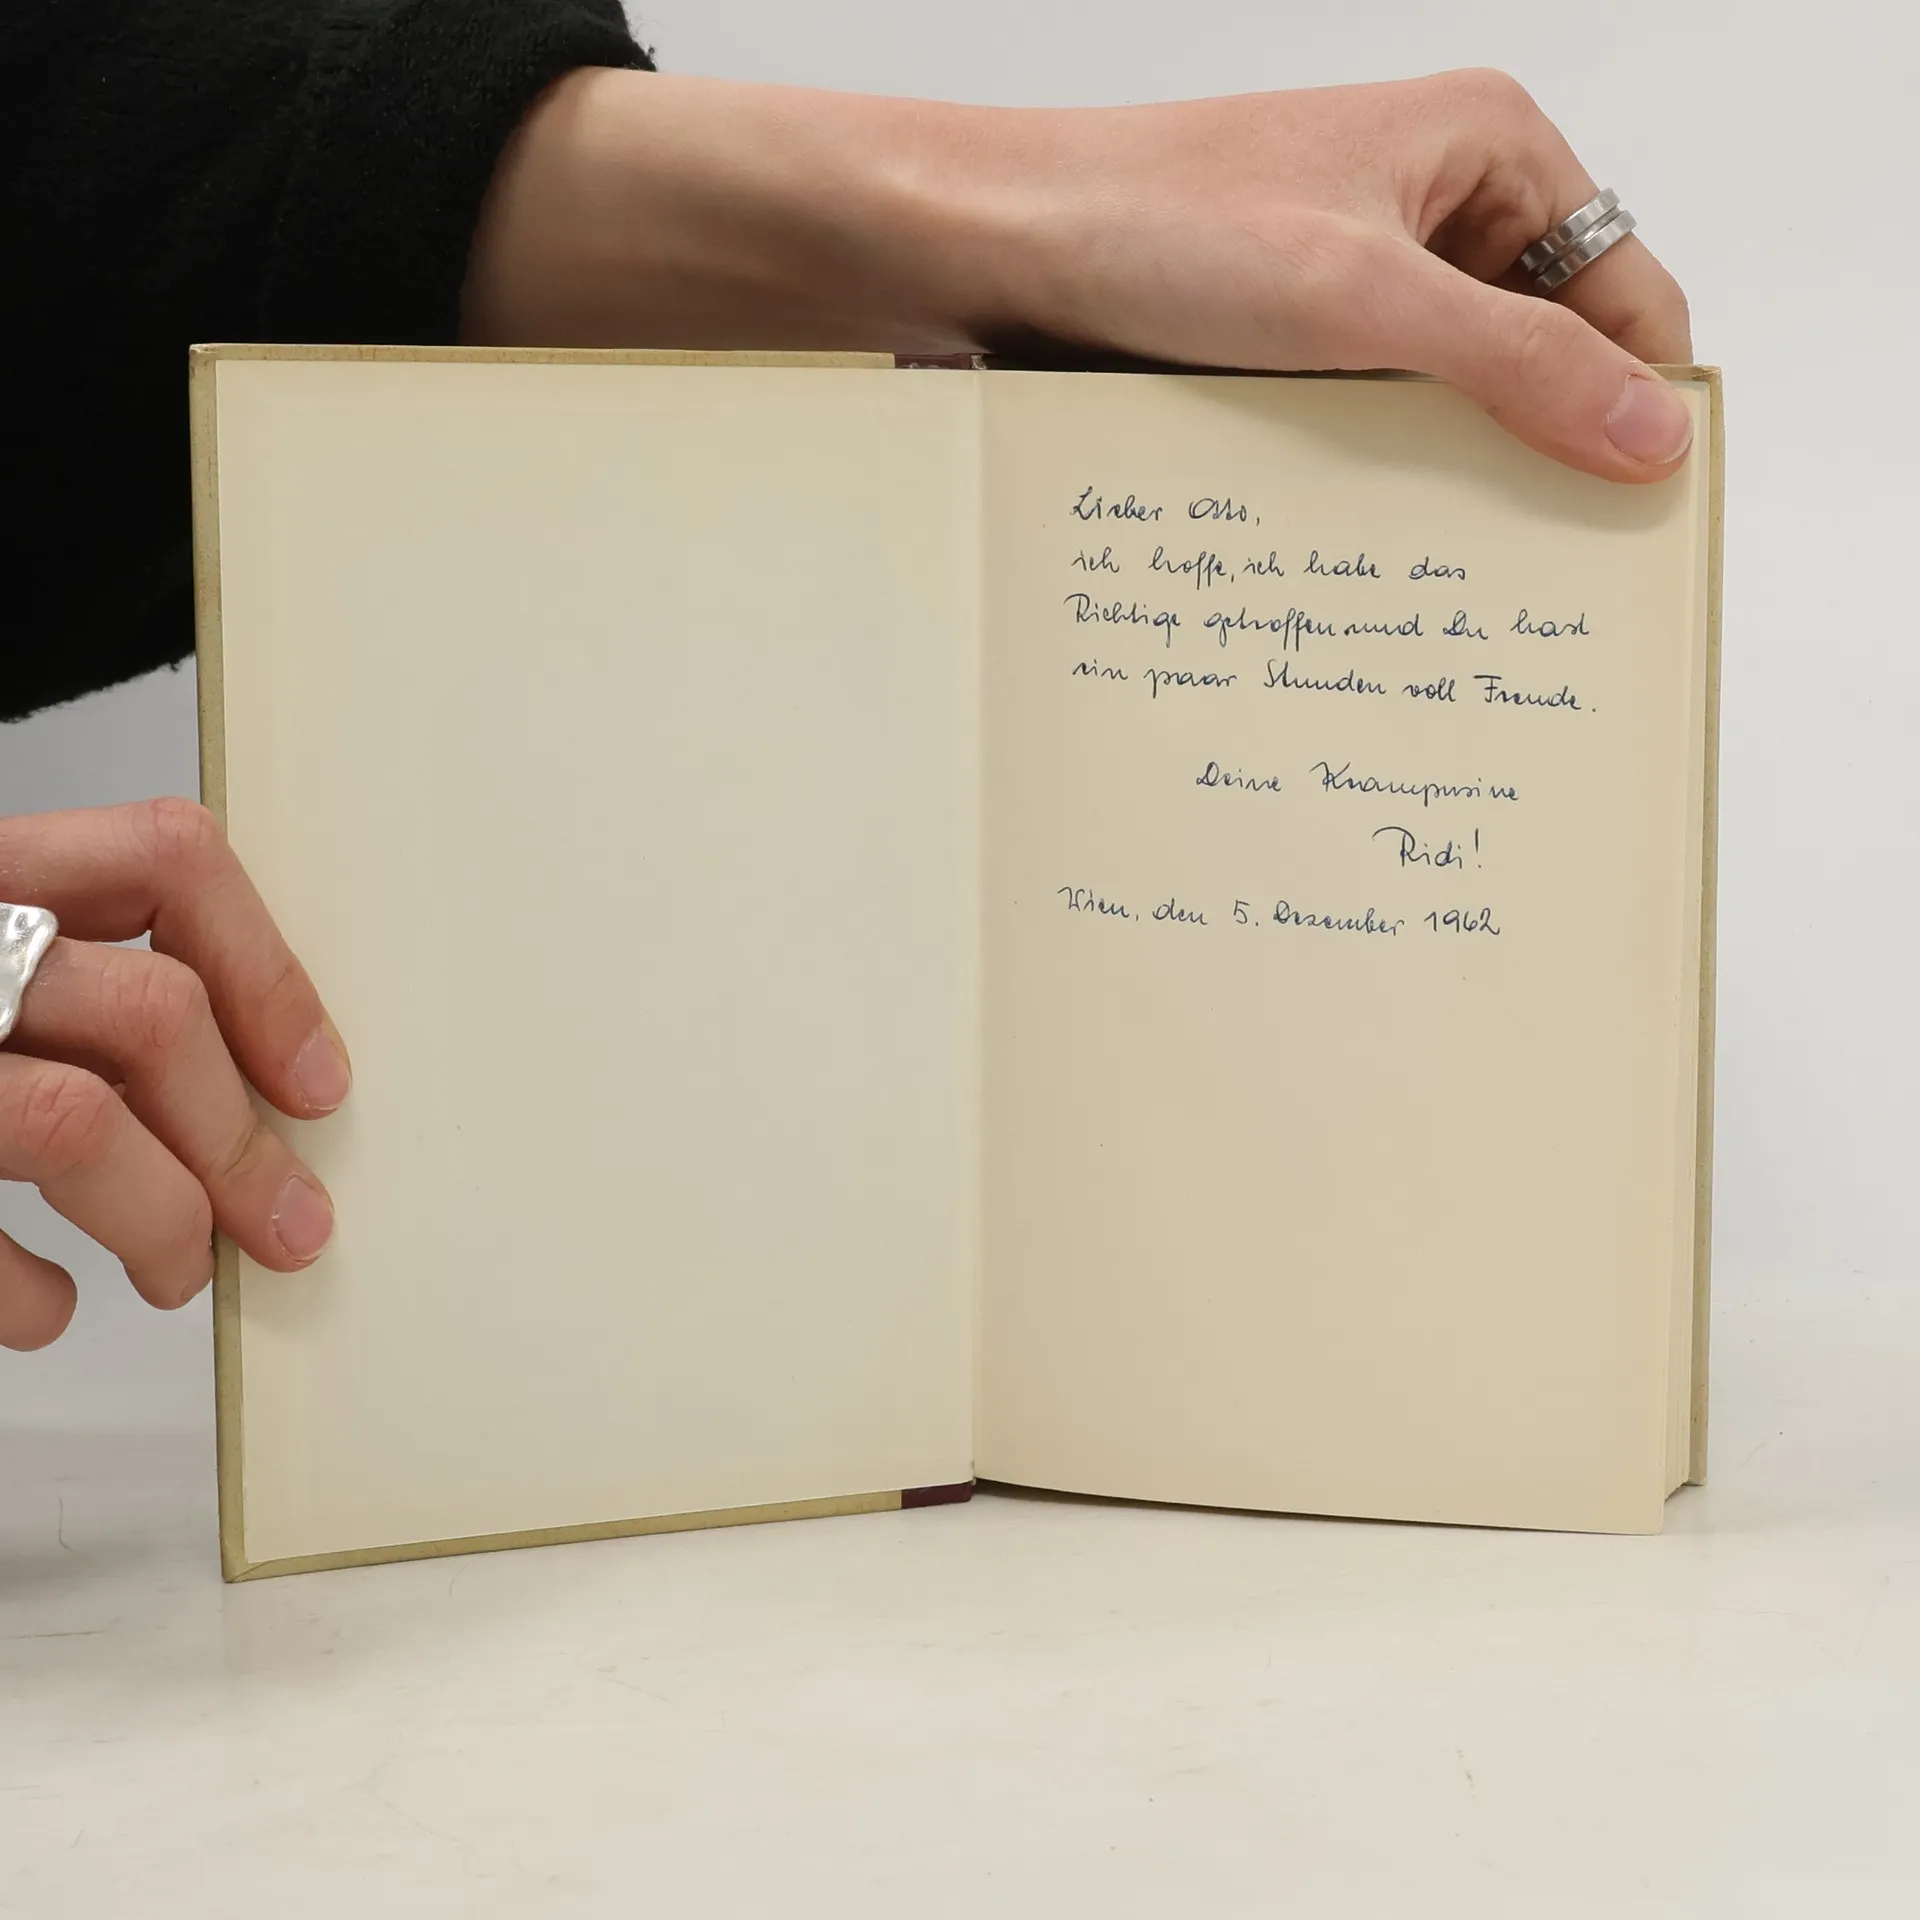 Lieber Otto,
ich hoffe, ich habe das
Richtige getroffen und Du hast
ein paar Stunden voll Freude.
Deine Krampusine
Ridi!
Wien, den 5. Dezember 1962